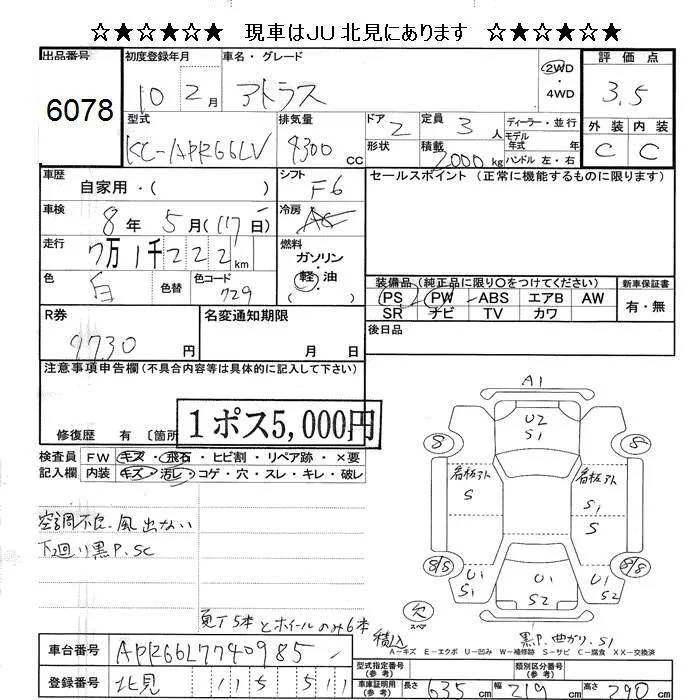 ☆★☆★☆★ 現車はJU 北見にあります ☆★☆★☆★
出品番号 初度登録年月 車名・グレード 2WD 評価点
6078 10 2月 アトラス ・4WD 3.5
型式 排気量 ドア 2 定員 3人 ディーラー・並行 外装 内装
KC-APR66LV 4300cc 形状 積載 2000kg モデル年式 年式 C C
ハンドル 左・右
車歴 自家用・( ) シフト F6 セールスポイント (正常に機能するものに限ります)
車検 8年 5月 (17日) 冷房 AC
走行 7万1千222km 燃料 ガソリン・軽油
色 白 色替 色コード 729 ( )
装備品 (純正品に限り○をつけてください) 新車保証書
PS PW ABS エアB AW 有・無
SR ナビ TV カワ
R券 名変通知期限 後日品
9730円 月 日
注意事項申告欄 (不具合内容等は具体的に記入して下さい)
1ポス5,000円
修復歴 有 〔箇所
検査員 FW キズ・飛石・ヒビ割・リペア跡・×要
記入欄 内装 キズ・汚レ・コゲ・穴・スレ・キレ・破レ
A1
U2
S1
8 8
看板アト 看板アト
S S1
S
8/8 8/8
U1 U1 U1
S1 S2 S2
空調不良.風出ない
下廻り黒P.SC
夏T5本とホイールのみ6本
欠
スペア
積込
黒P.曲がり.S1
A-キズ E-エクボ U-凹み W-補修跡 S-サビ C-腐食 XX-交換済
車台番号 APR66L7740985
登録番号 北見 11 5 511
型式指定番号(参考) 類別区分番号(参考)
車庫証明用(参考) 長さ 635cm 幅 219cm 高さ 290cm